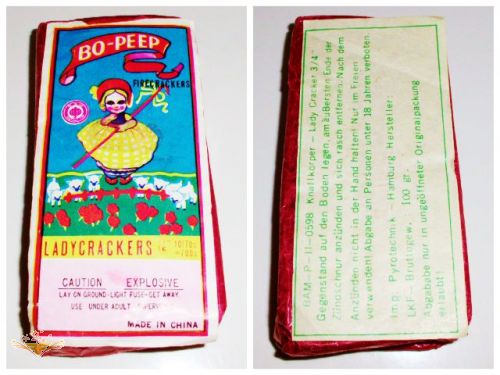 BO-PEEP
FIRECRACKERS
LADYCRACKERS
CAUTION EXPLOSIVE
LAY ON GROUND-LIGHT FUSE-GET AWAY
USE UNDER ADULT
MADE IN CHINA
BAM-P-II-0598 Knallkörper - Lady Cracker 3/4"
Gegenstand auf den Boden legen, am äußersten Ende der
Zündschnur anzünden und sich rasch entfernen. Nach dem
Anzünden nicht in der Hand halten! Nur im Freien
verwenden! Abgabe an Personen unter 18 Jahren verboten.
Pyrotechnik Hamburg Hersteller
LKF- 100 gr.
Abgabe nur in ungeöffneter Originalpackung
erlaubt!